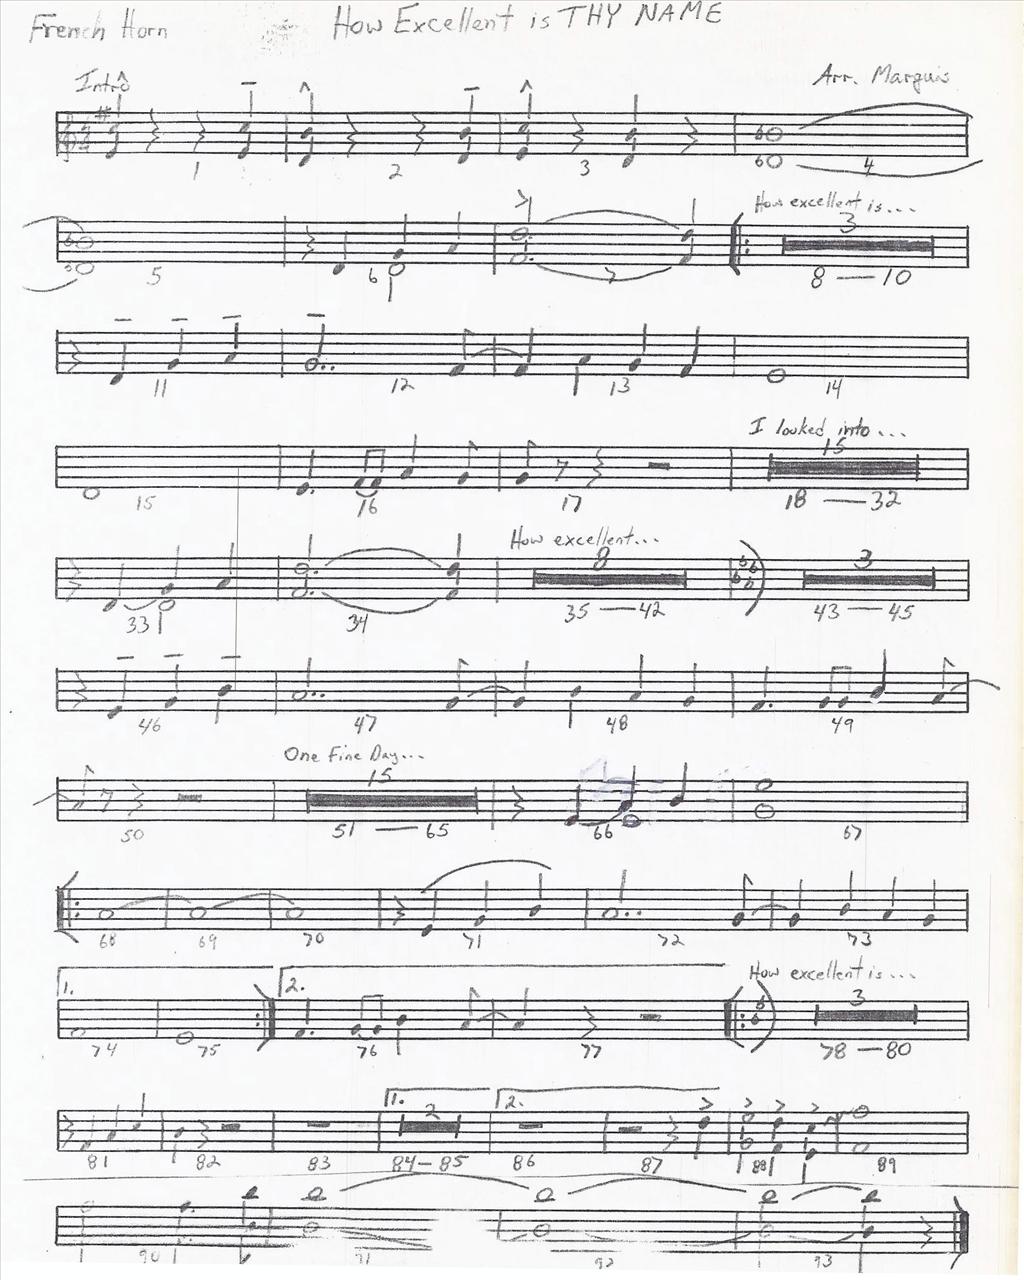 French Horn
How Excellent is THY NAME
Intro
Arr. Marquis
1 2 3 4
How excellent is...
3
5 6 7 8 — 10
11 12 13 14
I looked into...
15
15 16 17 18 — 32
How excellent...
8 3
33 34 35 — 42 43 — 45
46 47 48 49
One Fine Day...
15
50 51 — 65 66 67
68 69 70 71 72 73
1. 2. How excellent is...
3
74 75 76 77 78 — 80
1. 2.
2
81 82 83 84 — 85 86 87 88 89
90 91 92 93